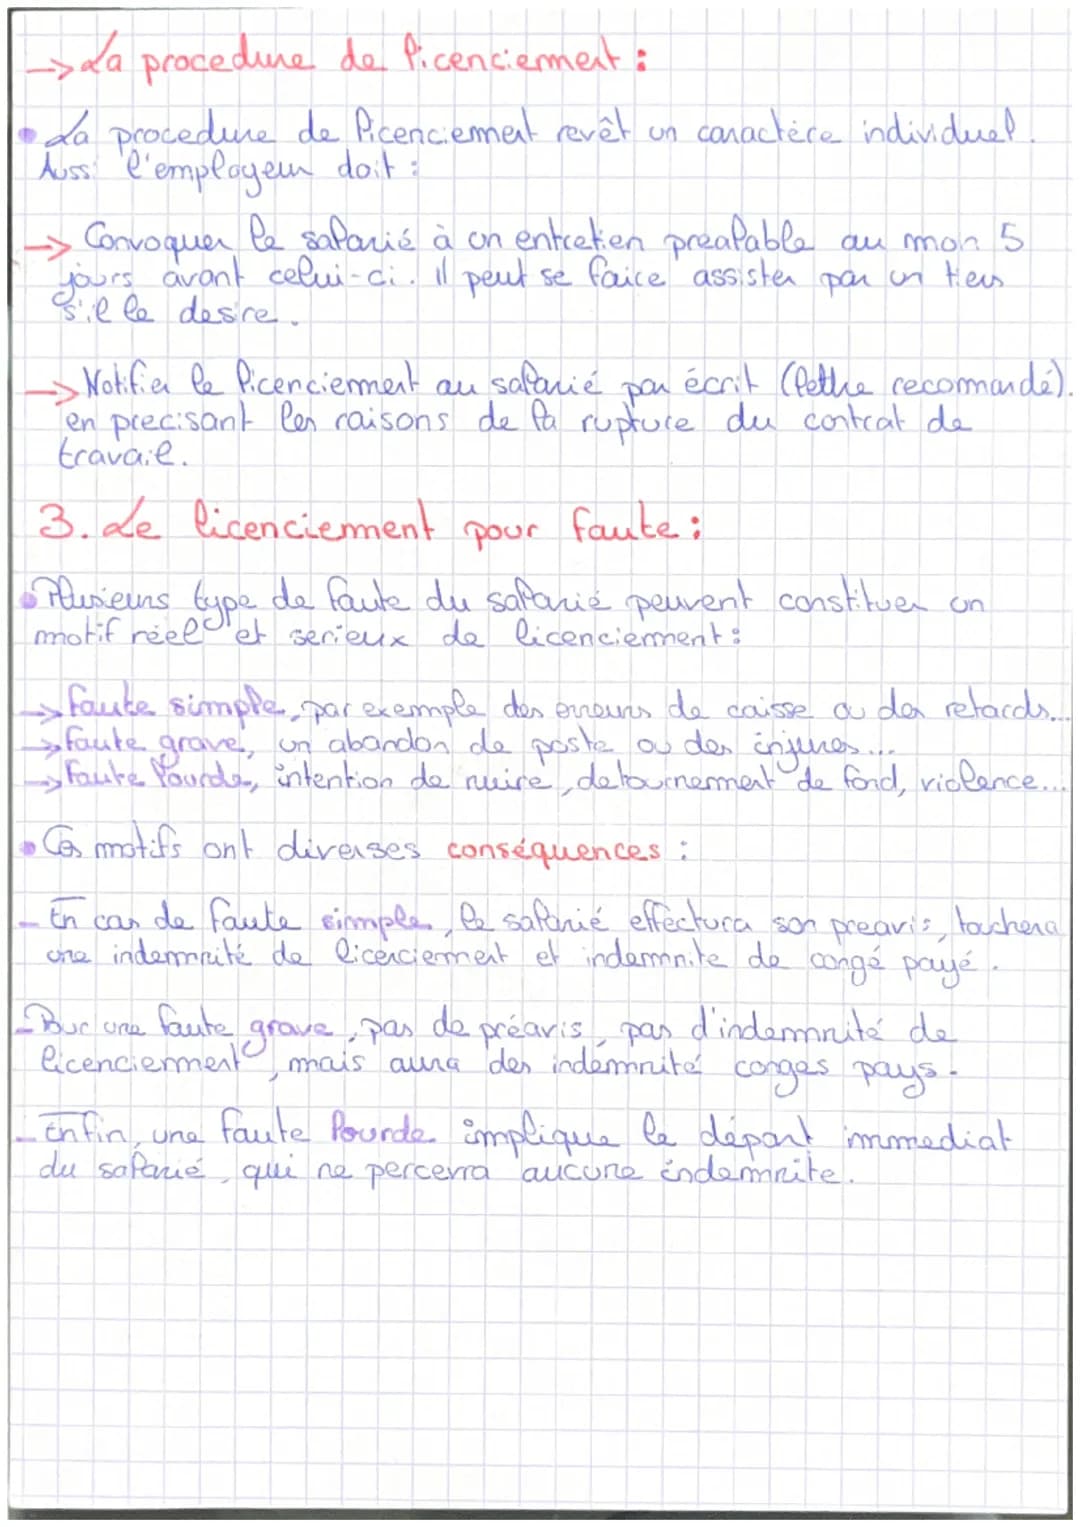 → La procedure de licenciement :
• La procedure de licenciement revêt un caractère individuel.
Aussi l'employeur doit :
→ Convoquer le salarié à un entretien prealable au mon 5
jours avant celui-ci. il peut se faire assister par un tiers
s'il le desire.
→ Notifier le licenciement au salarié par écrit (lettre recommandé).
en precisant les raisons de la rupture du contrat de
travail.
3. Le licenciement pour faute :
• Plusieurs type de faute du salarié peuvent constituer un
motif réel et serieux de licenciement :
→ faute simple, par exemple des erreurs de caisse ou des retards...
→ faute grave, un abandon de poste ou des injures...
→ Faute lourde, intention de nuire, detournement de fond, violence...
• Ces motifs ont diverses conséquences :
- En cas de faute simple, le salarié effectura son preavis, touchera
une indemnité de licenciement et indemnite de congé payé.
- Pour une faute grave, pas de préavis, pas d'indemnité de
licenciement, mais aura des indemnité conges pays.
- Enfin, une faute lourde implique le départ immediat
du salarié, qui ne percerra aucune indemnite.